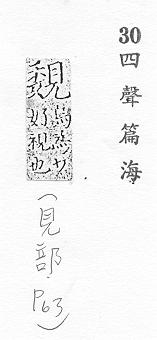 30
四聲篇海
覣
烏為切
好視也
（見部 P63）